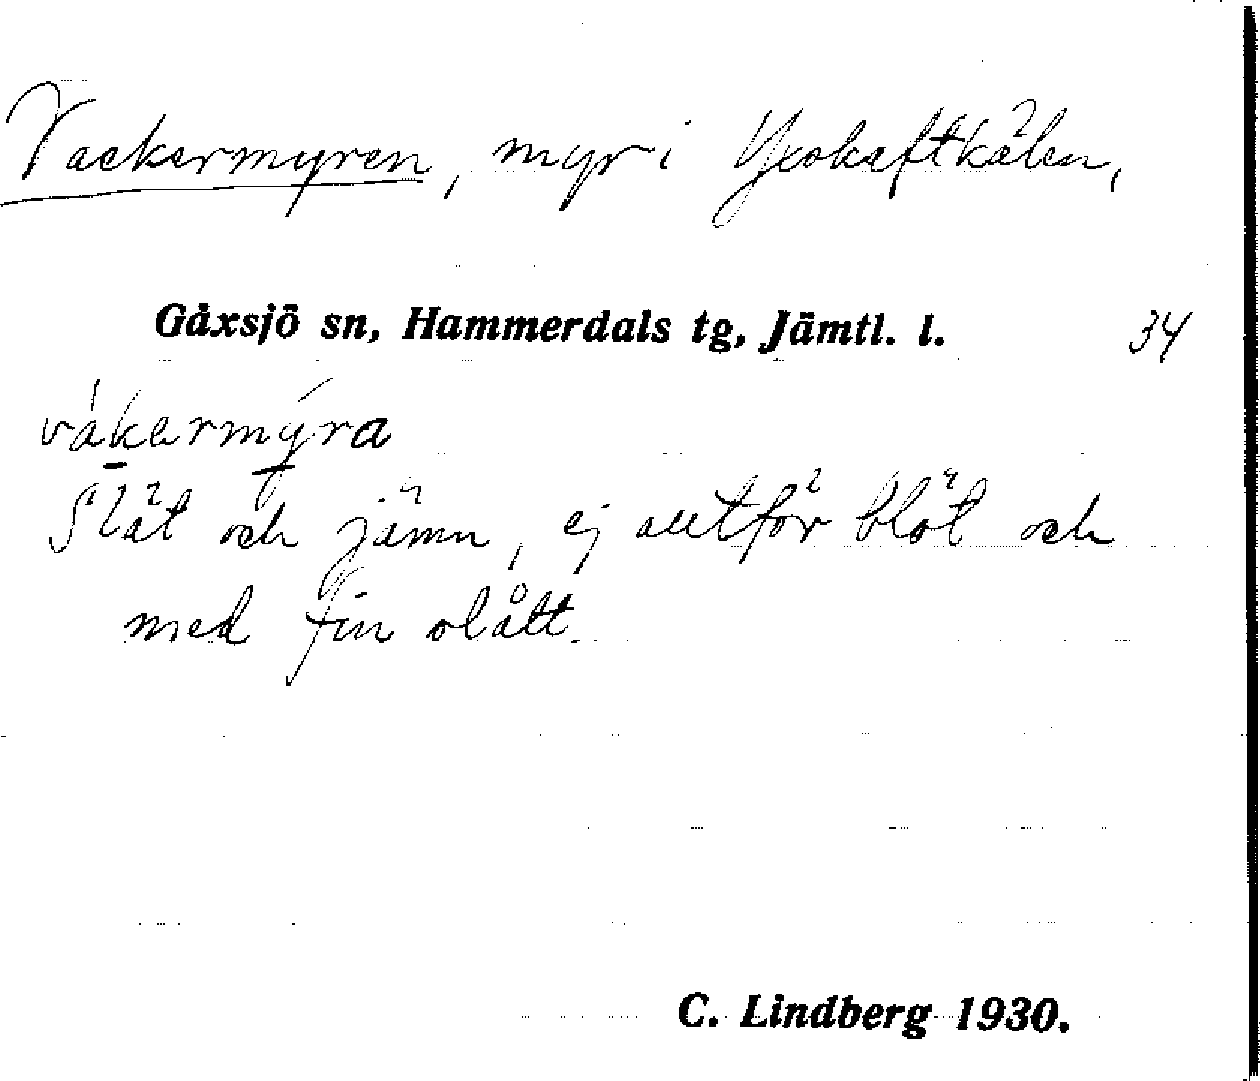 Vackermyren, myr i Yxskaftkälen,
Gåxsjö sn, Hammerdals tg, Jämtl. l. 34
våkermýra
Slät och jämn, ej alltför blöt och
med fin slått.
C. Lindberg 1930.